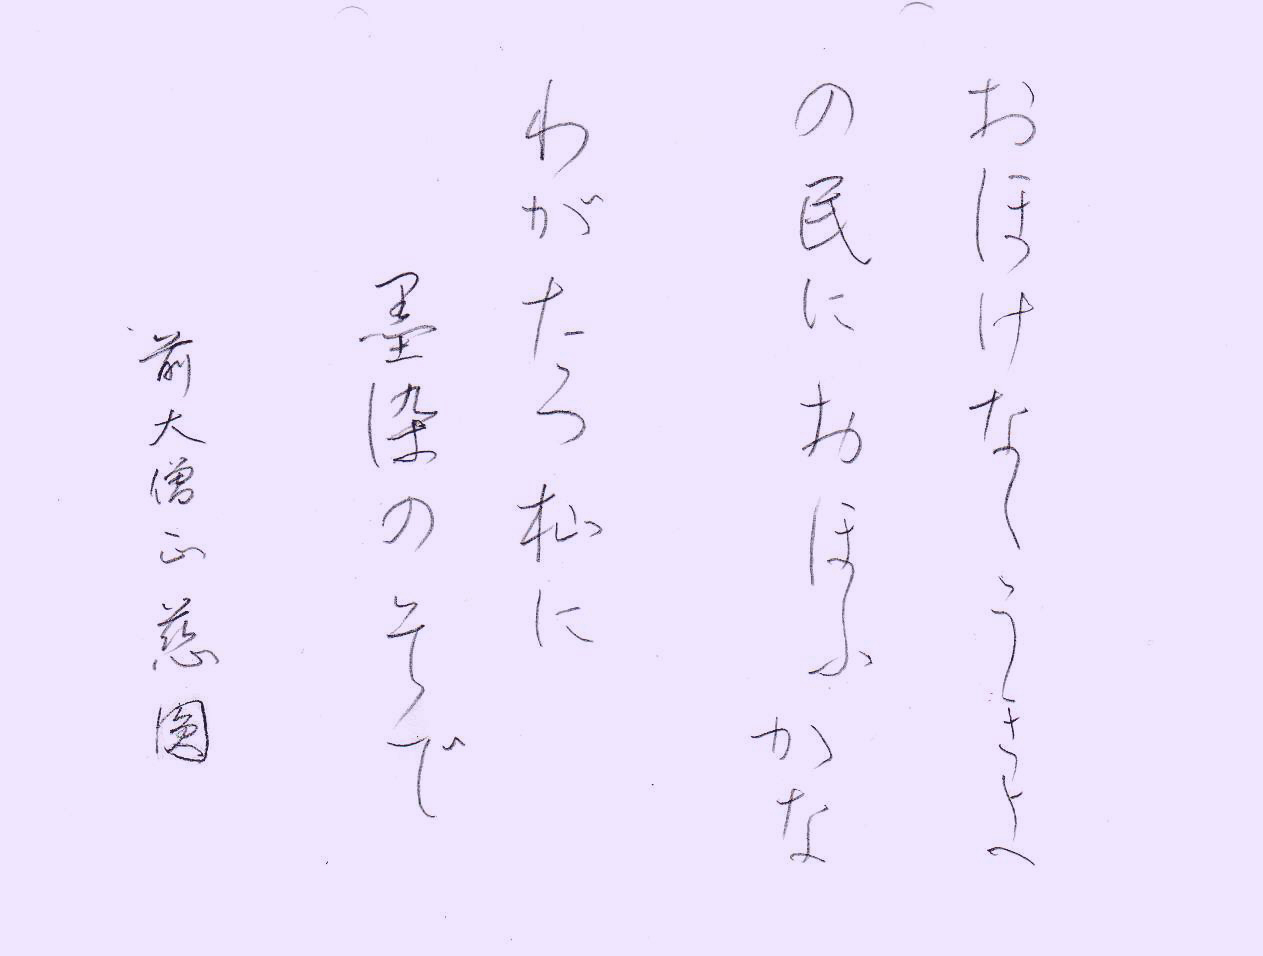 おほけなくうきよ
の民におほふかな
わがたつ杣に
墨染のそで
前大僧正慈圓